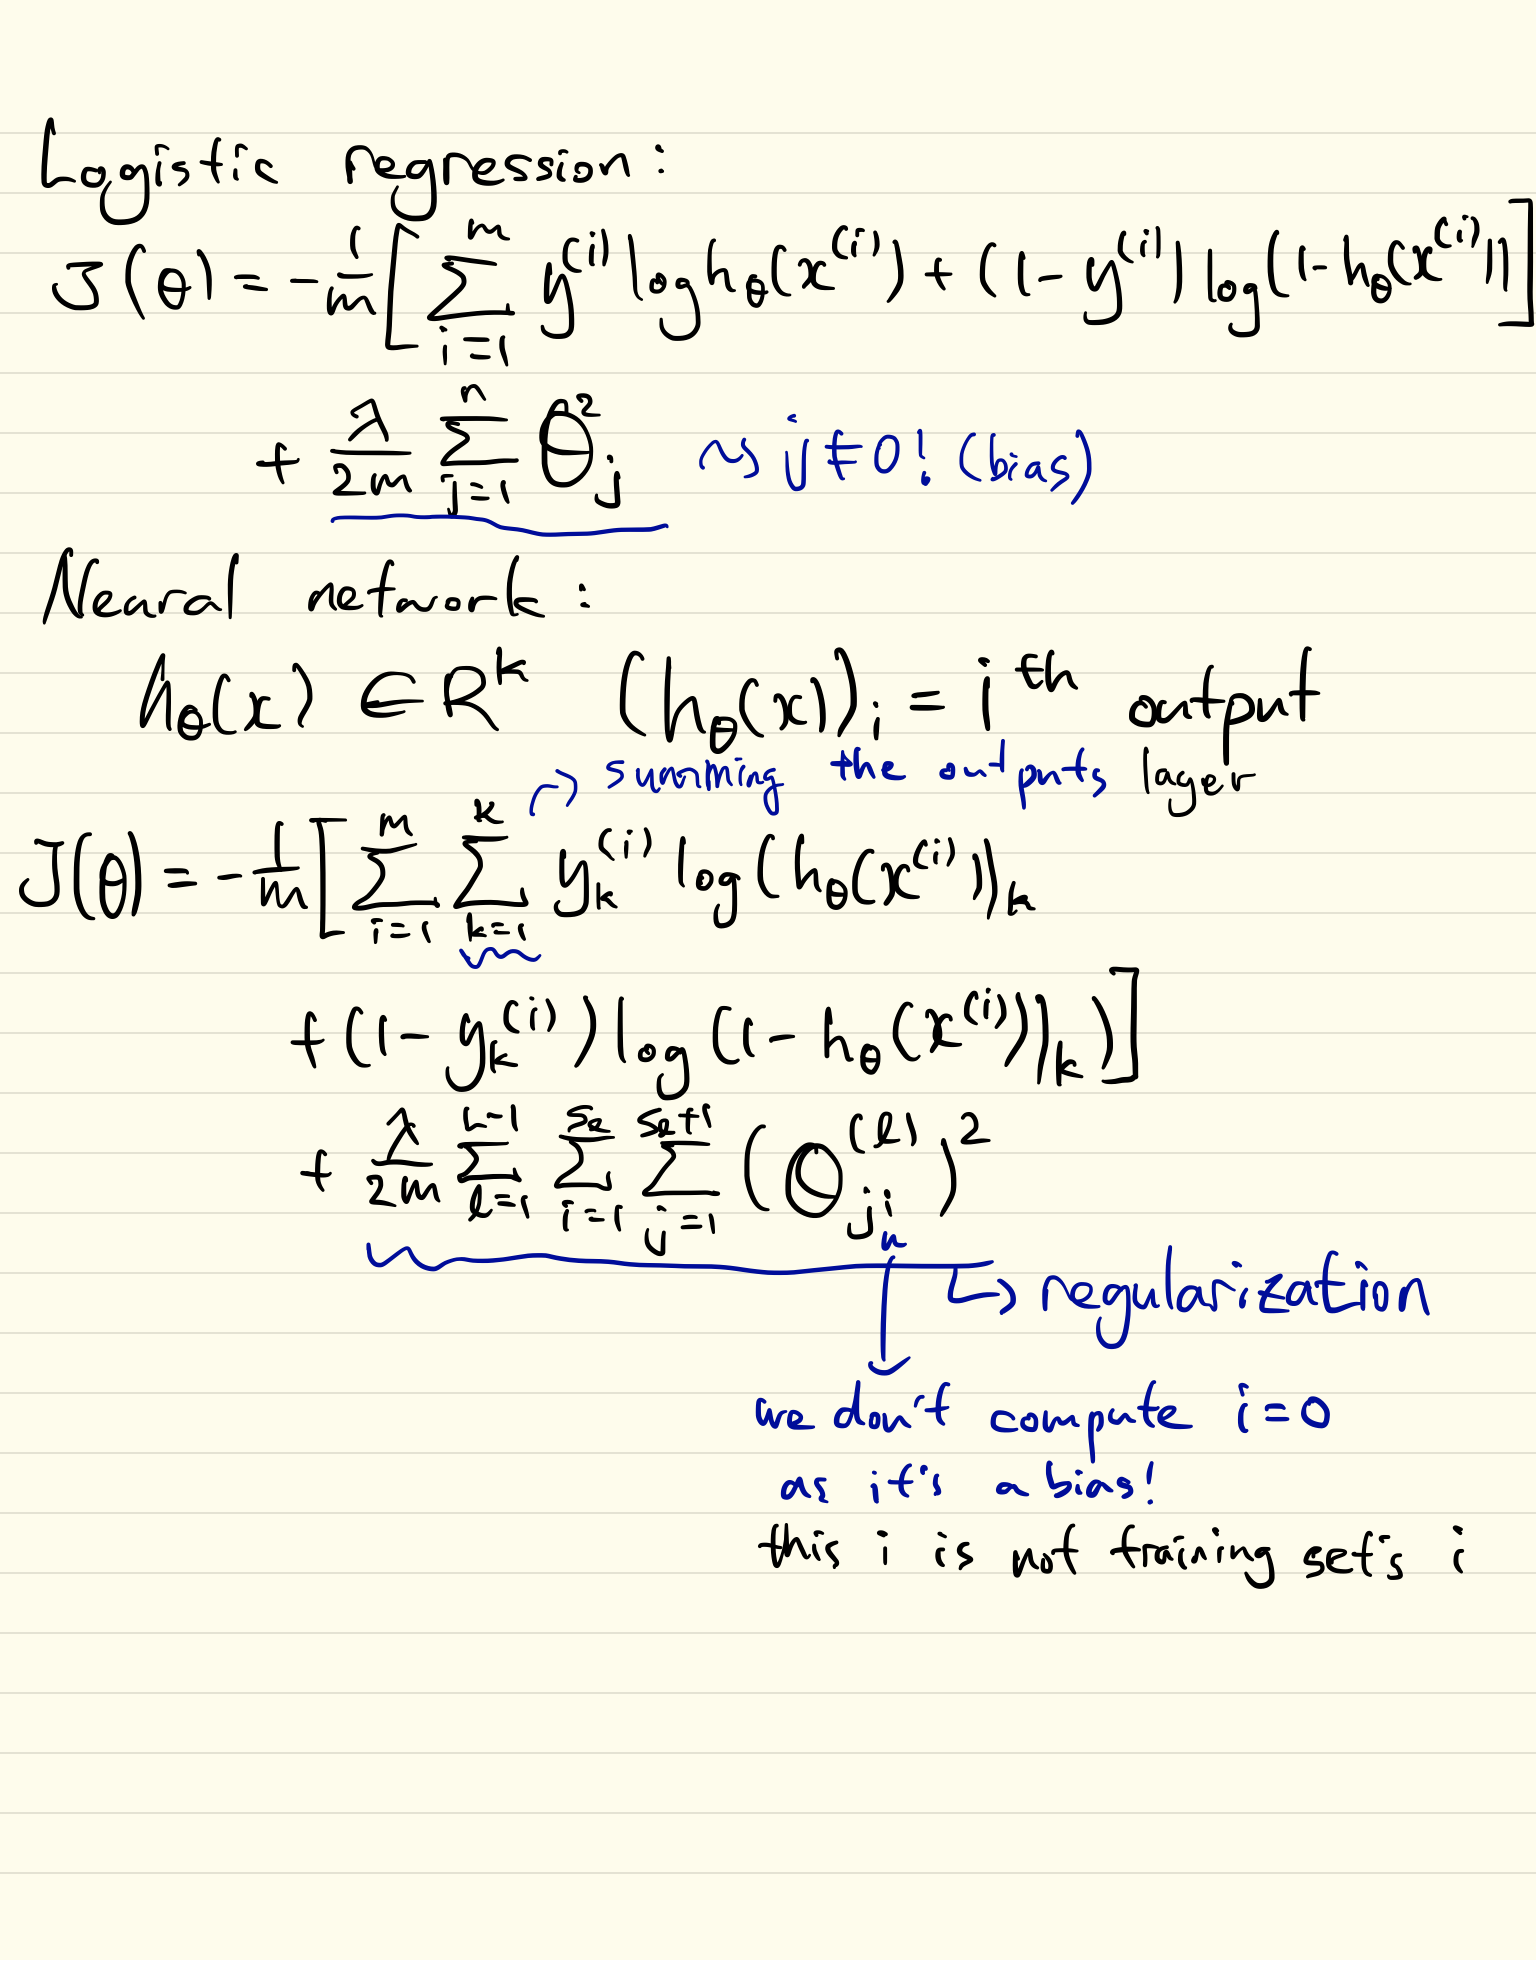 Logistic regression:
J(θ) = -1/m [ Σ_{i=1}^{m} y^{(i)} log h_θ(x^{(i)}) + (1-y^{(i)}) log(1-h_θ(x^{(i)})) ]
+ λ/2m Σ_{j=1}^{n} θ_j^2 ⇝ j≠0! (bias)
Neural network:
h_θ(x) ∈ R^k (h_θ(x))_i = i^{th} output
→ summing the outputs layer
J(θ) = -1/m [ Σ_{i=1}^{m} Σ_{k=1}^{k} y_k^{(i)} log(h_θ(x^{(i)}))_k
+ (1-y_k^{(i)}) log(1-h_θ(x^{(i)}))_k) ]
+ λ/2m Σ_{l=1}^{L-1} Σ_{i=1}^{s_l} Σ_{j=1}^{s_l+1} (Θ_{ji}^{(l)})^2
↳ regularization
we don't compute i=0
as it's a bias!
this i is not training set's i